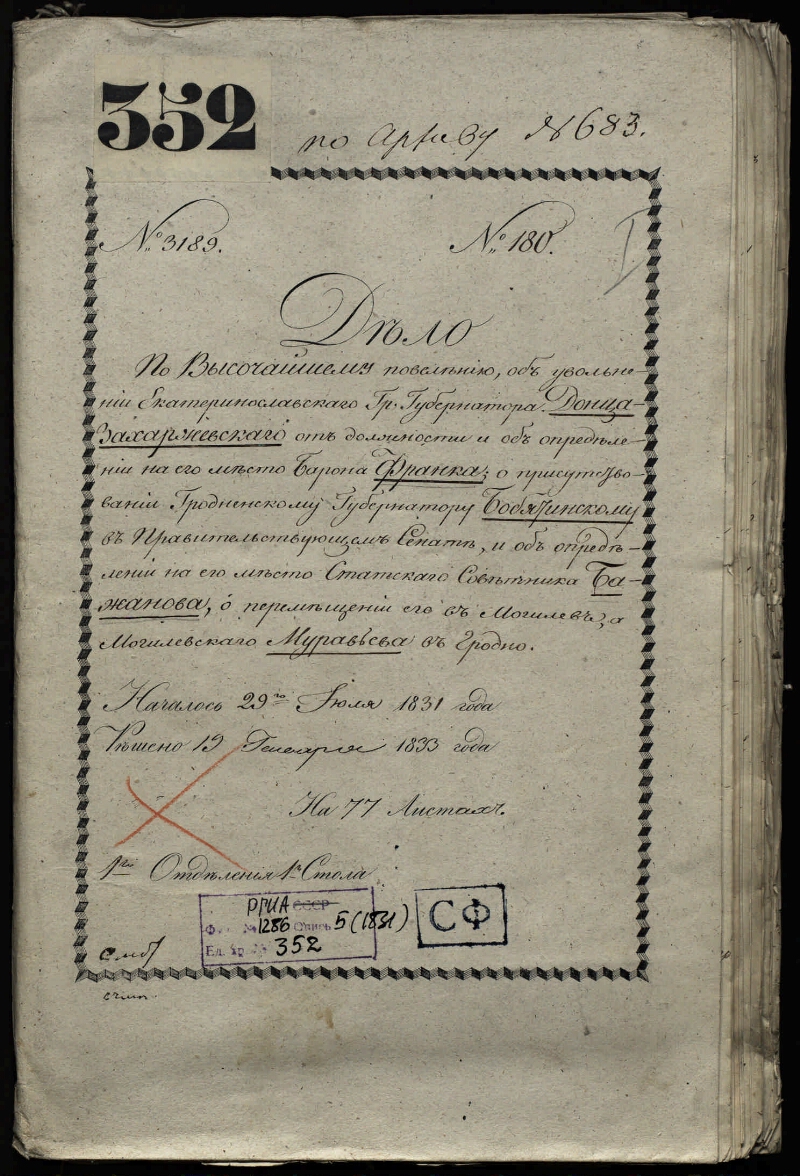 352
по Архиву № 683.
№ 3189. № 180.
I
Дѣло
По Высочайшему повелѣнію, объ увольне-
ніи Екатеринославскаго Гр. Губернатора Донца-
Захаржевскаго отъ должности и объ опредѣле-
ніи на его мѣсто Барона Франка; о присутство-
ваніи Гродненскому Губернатору Бобятинскому
въ Правительствующемъ Сенатѣ, и объ опредѣ-
леніи на его мѣсто Статскаго Совѣтника Ба-
жанова, о перемѣщеніи его въ Могилевъ, а
Могилевскаго Муравьева въ Гродно.
Началось 29го Іюля 1831 года
Рѣшено 19 Генваря 1833 года
На 77 Листахъ.
1го Отдѣленія 1 Стола
РГИА СССР
Ф. № 1286 Опись 5 (1831)
Ед. Хр. № 352
СФ